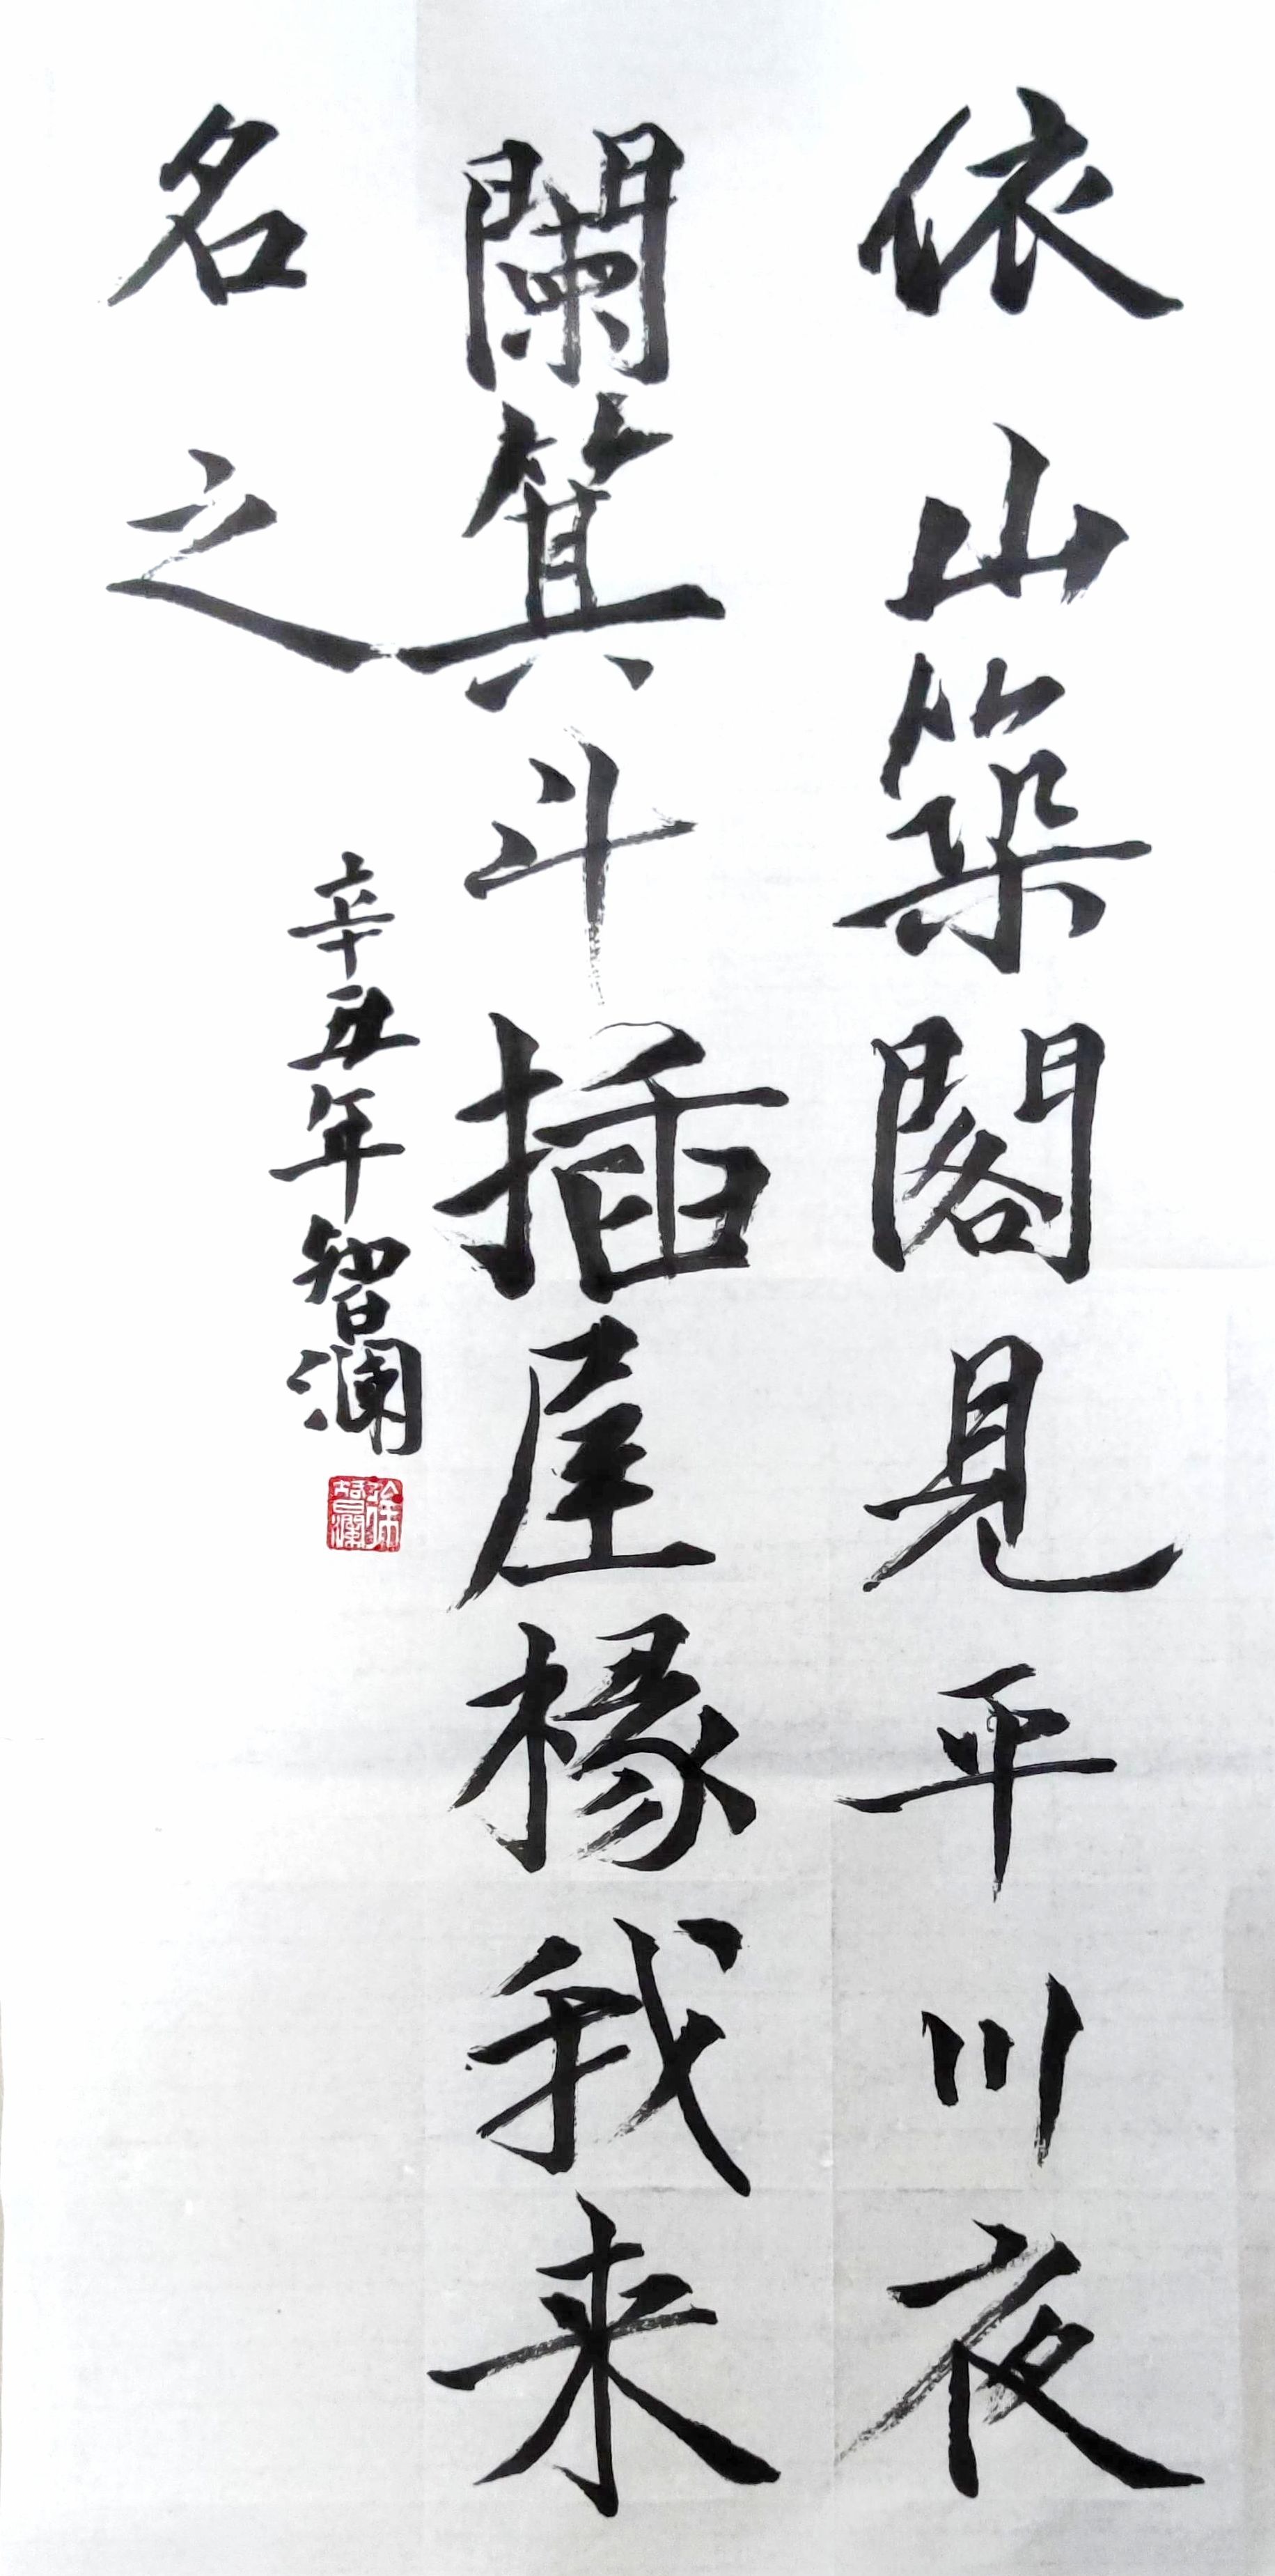 依山築閣見平川夜
闌箕斗插屋椽我来
名之
辛丑年智瀾
徐智瀾